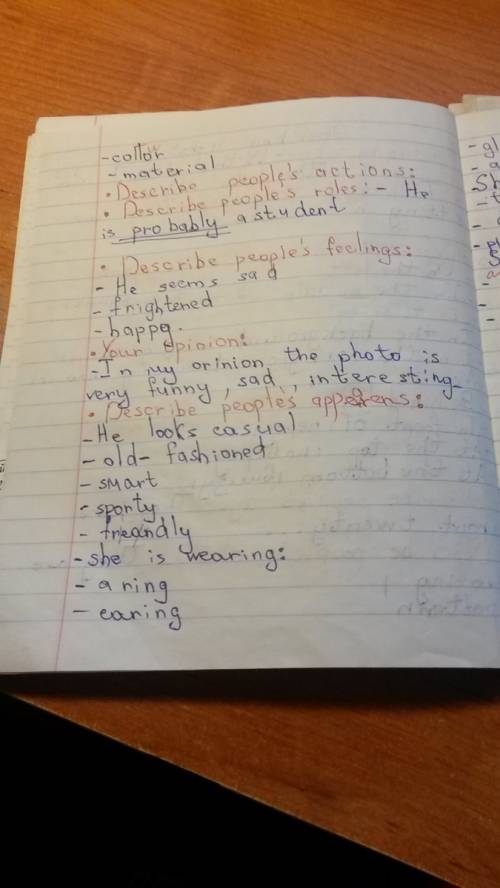 -collor
-material
• Describe people's actions:
• Describe people's roles: - He
is probably a student
• Describe people's feelings:
- He seems sad
- frightened
- happy.
• Your opinion:
-In my orinion the photo is
very funny, sad, interesting
• Describe people's appearens:
-He looks casual
- old-fashioned
- smart
- sporty
- freandly
-she is wearing:
- a ring
- earing
- gl
- a
Sh